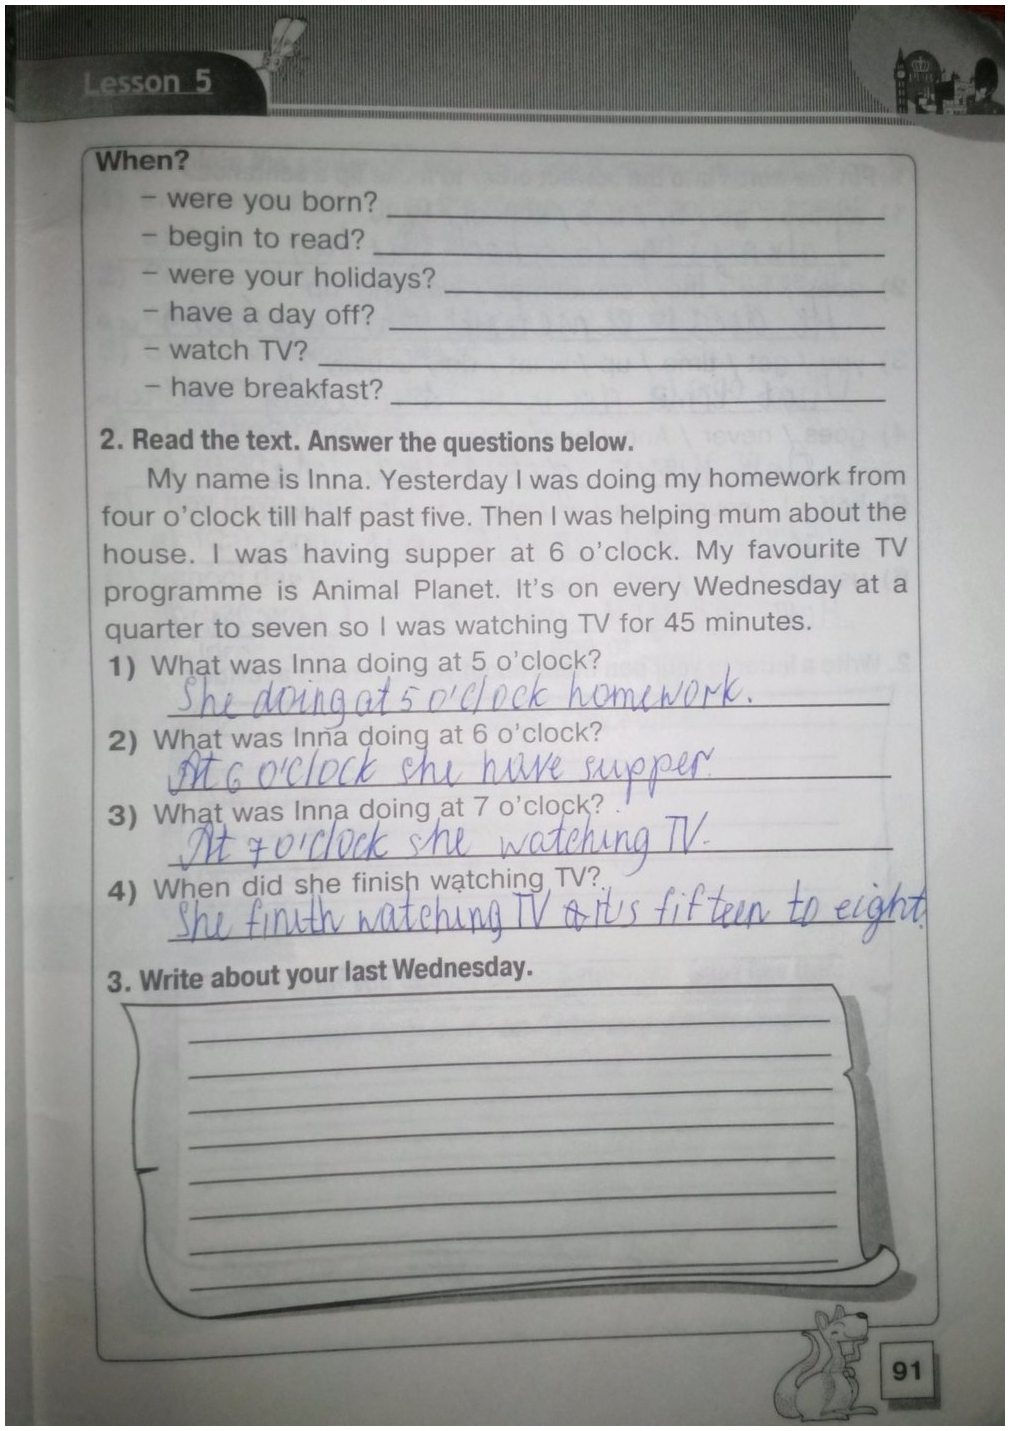 Lesson 5
When?
– were you born?
– begin to read?
– were your holidays?
– have a day off?
– watch TV?
– have breakfast?
2. Read the text. Answer the questions below.
My name is Inna. Yesterday I was doing my homework from
four o'clock till half past five. Then I was helping mum about the
house. I was having supper at 6 o'clock. My favourite TV
programme is Animal Planet. It's on every Wednesday at a
quarter to seven so I was watching TV for 45 minutes.
1) What was Inna doing at 5 o'clock?
She doing at 5 o'clock homework.
2) What was Inna doing at 6 o'clock?
At 6 o'clock she have supper.
3) What was Inna doing at 7 o'clock?
At 7 o'clock she watching TV.
4) When did she finish watching TV?
She finith watching TV it's fifteen to eight.
3. Write about your last Wednesday.
91